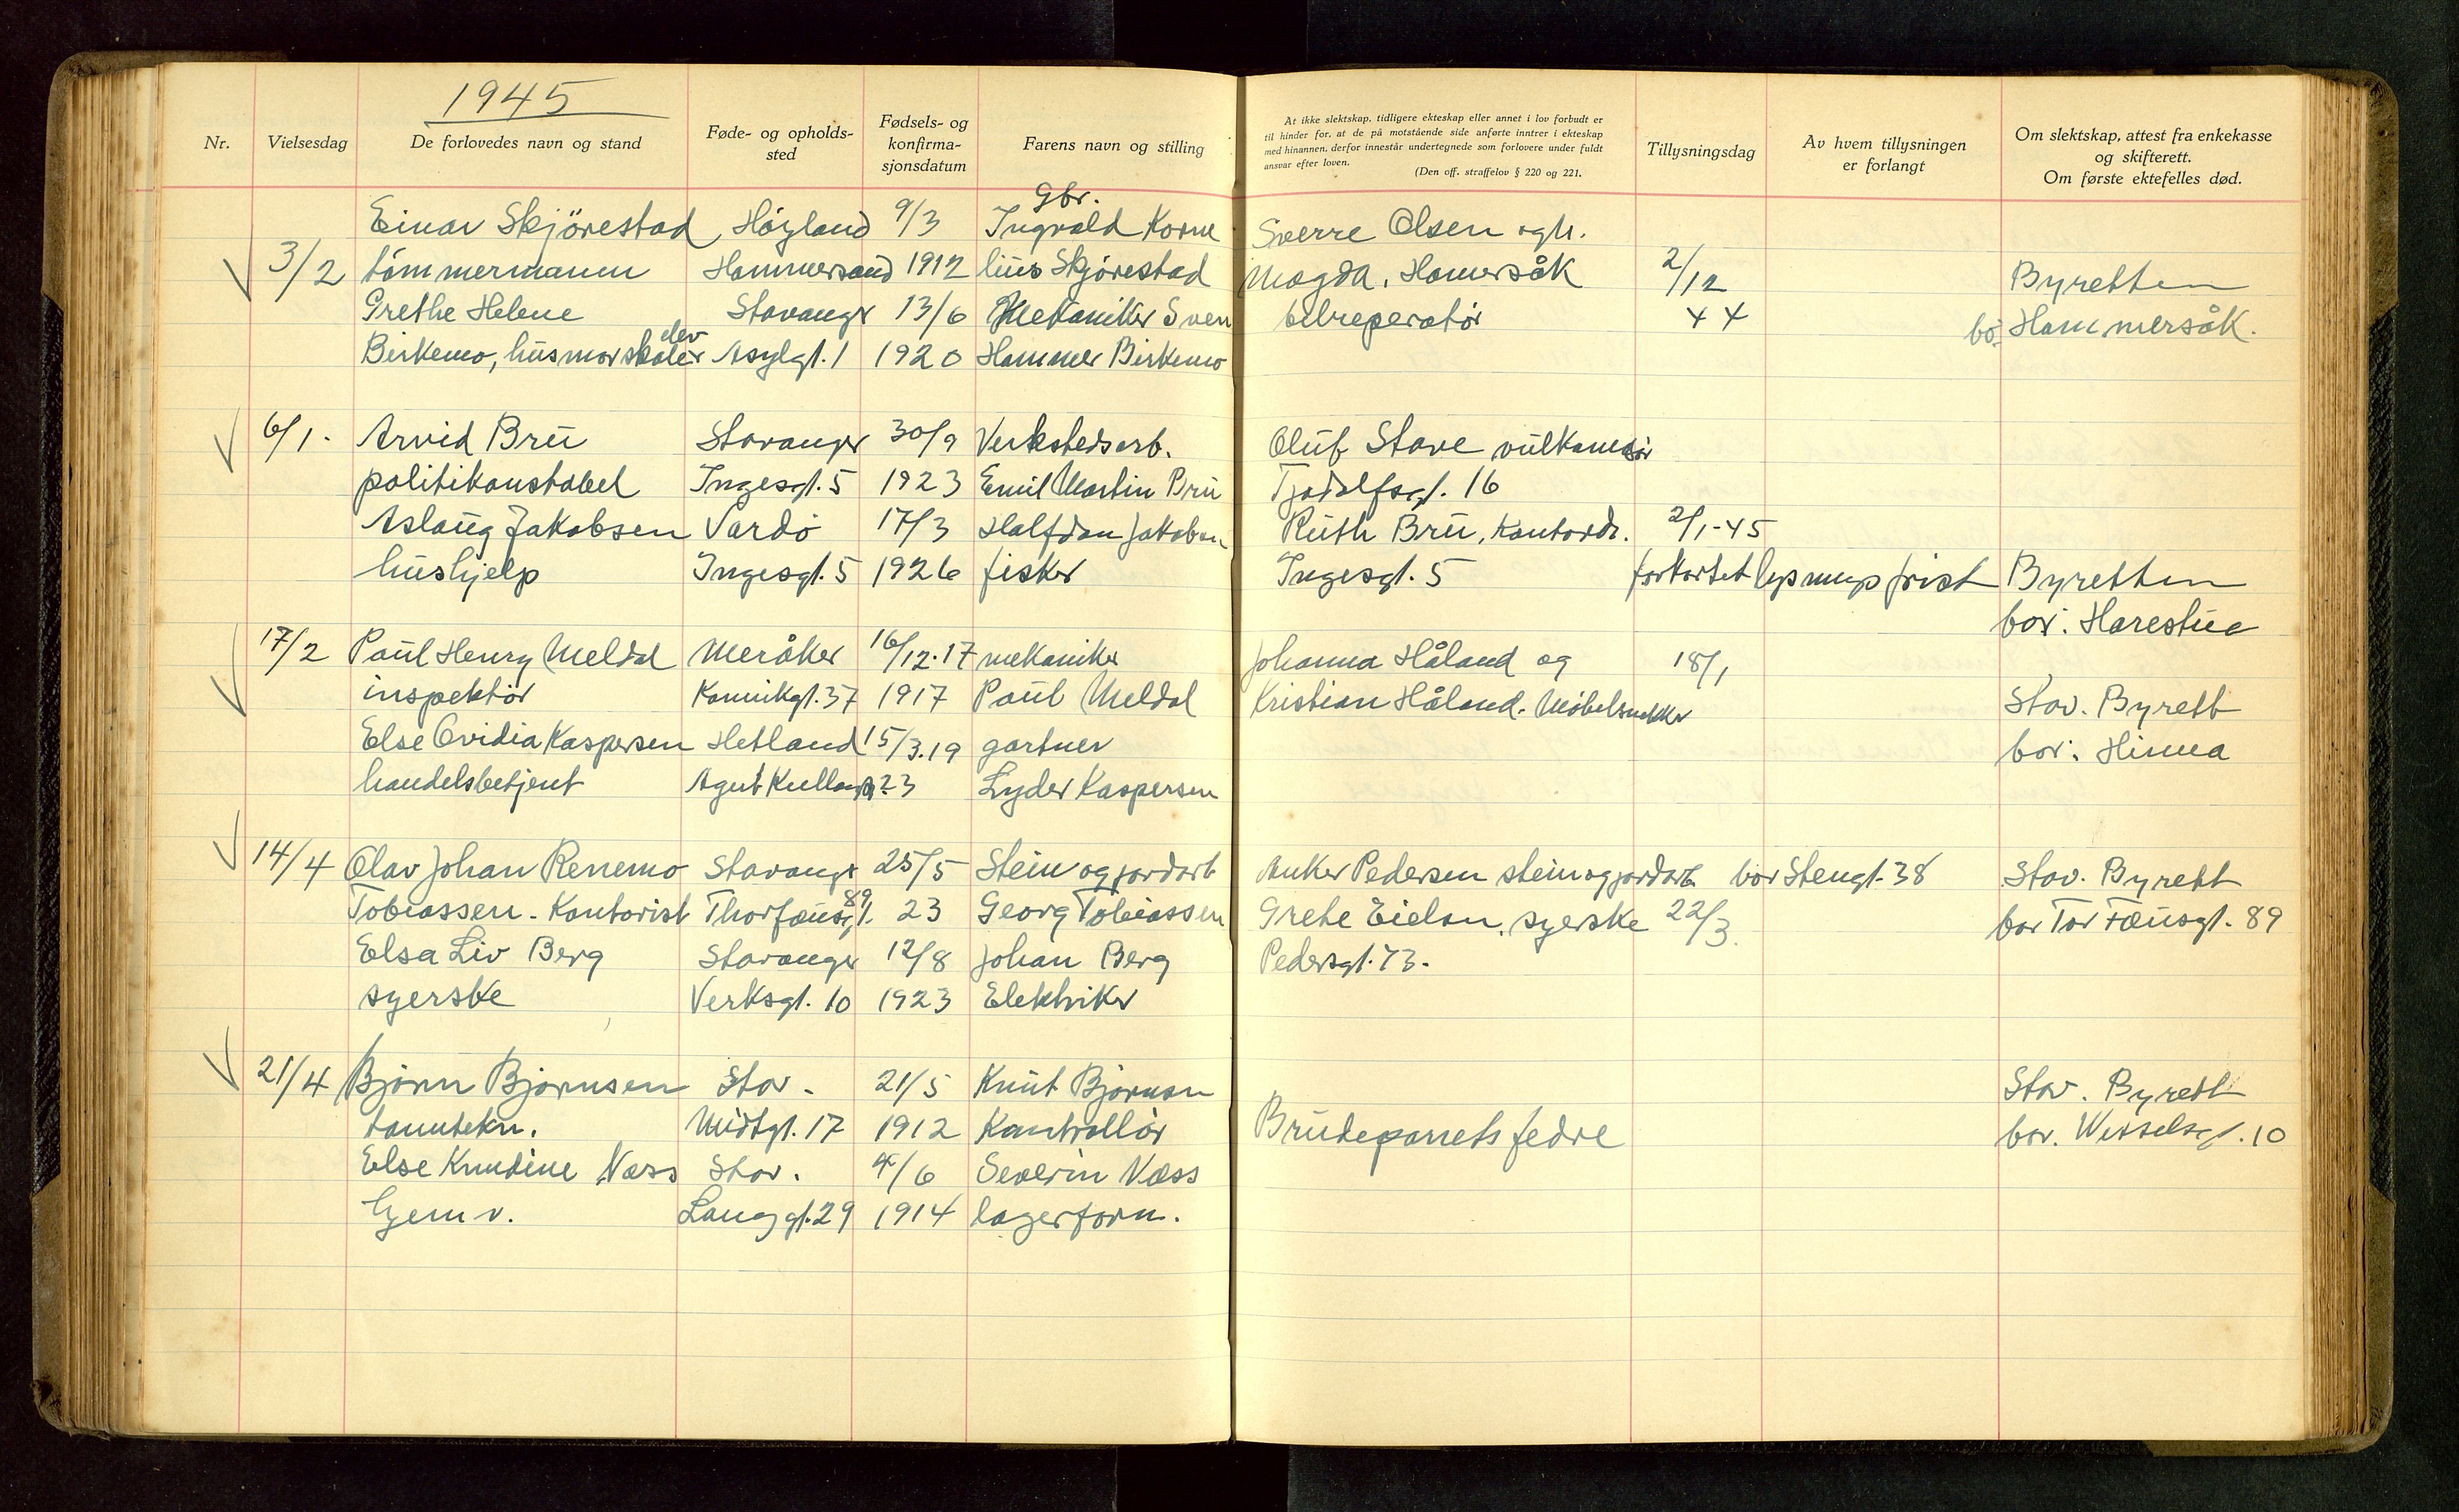 1945
Nr.
Vielsesdag
De forlovedes navn og stand
Føde- og opholds-
sted
Fødsels- og
konfirma-
sjonsdatum
Farens navn og stilling
At ikke slektskap, tidligere ekteskap eller annet i lov forbudt er
til hinder for, at de på motstående side anførte inntrer i ekteskap
med hinannen, derfor innestår undertegnede som forlovere under fuldt
ansvar efter loven.
(Den off. straffelov § 220 og 221.
Tillysningsdag
Av hvem tillysningen
er forlangt
Om slektskap, attest fra enkekasse
og skifterett.
Om første ektefelles død.
Gbr.
Einar Skjörestad Höyland 9/3 Ingvald Korne Sverre Olsen og h.
3/2 tömmermann Hammersand 1912 lius Skjörestad Magda, Hamersåk 2/12 Byretten
Grethe Helene Stavanger 13/6 Mekaniker Sven bilreperatör 44 bor: Hammersåk.
elev
Birkemo, husmorskole Asylgt. 1 1920 Hammer Birkemo
6/1. Arvid Bru Stavanger 30/9 Verkstedsarb. Oluf Stave
politikonstabel Ingesgt. 5 1923 Emil Martin Bru Tjodolfsgt. 16
Aslaug Jakobsen Vardö 17/3 Halfdan Jakobsen Ruth Bru, Kontord. 2/1-45
hushjelp Ingesgt. 5 1926 fisker Ingesgt. 5 forkortet lysningsfrist Byretten
bor: Harestua
17/2 Paul Henry Meldal Meråker 16/12.17 mekaniker Johanna Håland og 18/1
inspektör Kannikgt. 37 1917 Paul Meldal Kristian Håland. Möbelsnekker Stav. Byrett
Else Ovidia Kaspersen Hetland 15/3.19 gartner bor: Hinna
handelsbetjent 23 Lyder Kaspersen
14/4 Olav Johan Renemo Stavanger 25/5 Stein og jordarb Anker Pedersen stein og jordarb. bor Stengt. 38 Stav. Byrett
89
Tobiassen - Kontorist Thorfæusgt. 23 Georg Tobiassen Grete Eielsen, syerske 22/3. bor Tor Fæusgt. 89
Elsa Liv Berg Stavanger 12/8 Johan Berg Pedersgt. 73.
syerske Verksgt. 10 1923 Elektriker
21/4 Björn Björnsen Stav. 21/5 Knut Björnsen Stav. Byrett
tanntekn. Midtgt. 17 1912 Kontrollör Brudeparrets fedre bor. Wesselsgt. 10
Else Knudine Næss Stav. 4/6 Severin Næss
hjemv. Langgt. 29 1914 lagerform.